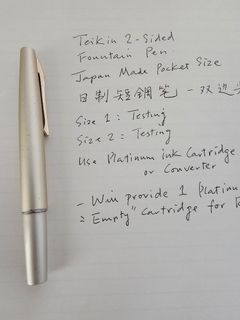 Teikin 2-Sided
Fountain Pen
Japan Made Pocket Size
日制短鋼笔 - 双边
Size 1 : Testing
Size 2 : Testing
Use Platinum ink Cartridge
or Converter
- Win provide 1 Platinu
= Empty" Cartridge for